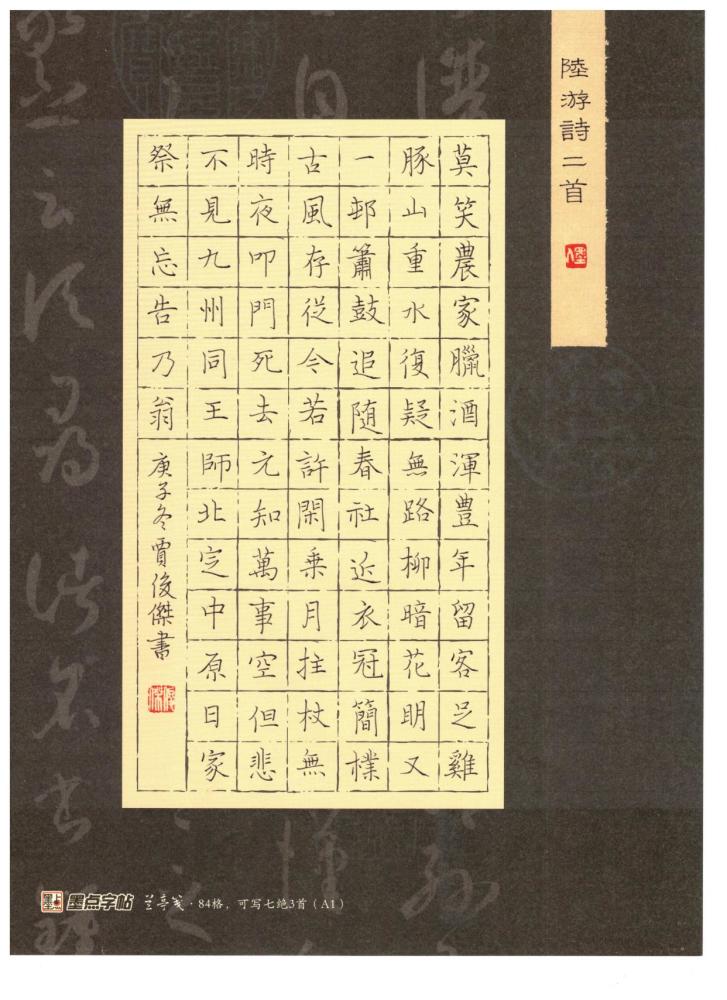 陸游詩二首
莫笑農家臘酒渾豊年留客足雞
豚山重水復疑無路柳暗花明又
一邨簫鼓追随春社近衣冠簡樸
古風存從今若許閑乗月拄杖無
時夜叩門死去元知萬事空但悲
不見九州同王師北定中原日家
祭無忘告乃翁
庚子冬賈俊傑書
墨点字帖 兰亭笺·84格，可写七绝3首（A1）